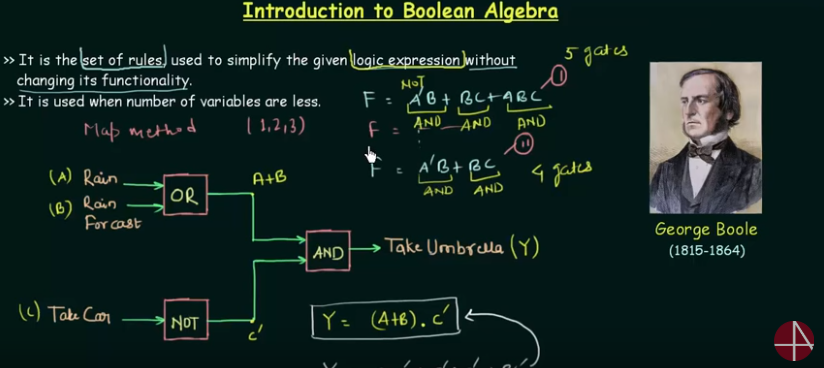 Introduction to Boolean Algebra
>> It is the set of rules used to simplify the given logic expression without
changing its functionality.
>> It is used when number of variables are less.
Map method (1,2,3)
5 gates
NOT
F = A'B + BC + ABC I
AND AND AND
F =
F = A'B + BC II
AND AND
4 gates
George Boole
(1815-1864)
(A) Rain
(B) Rain
Forcast
OR
A+B
AND
Take Umbrella (Y)
(C) Take Car
NOT
C'
Y = (A+B) . C'